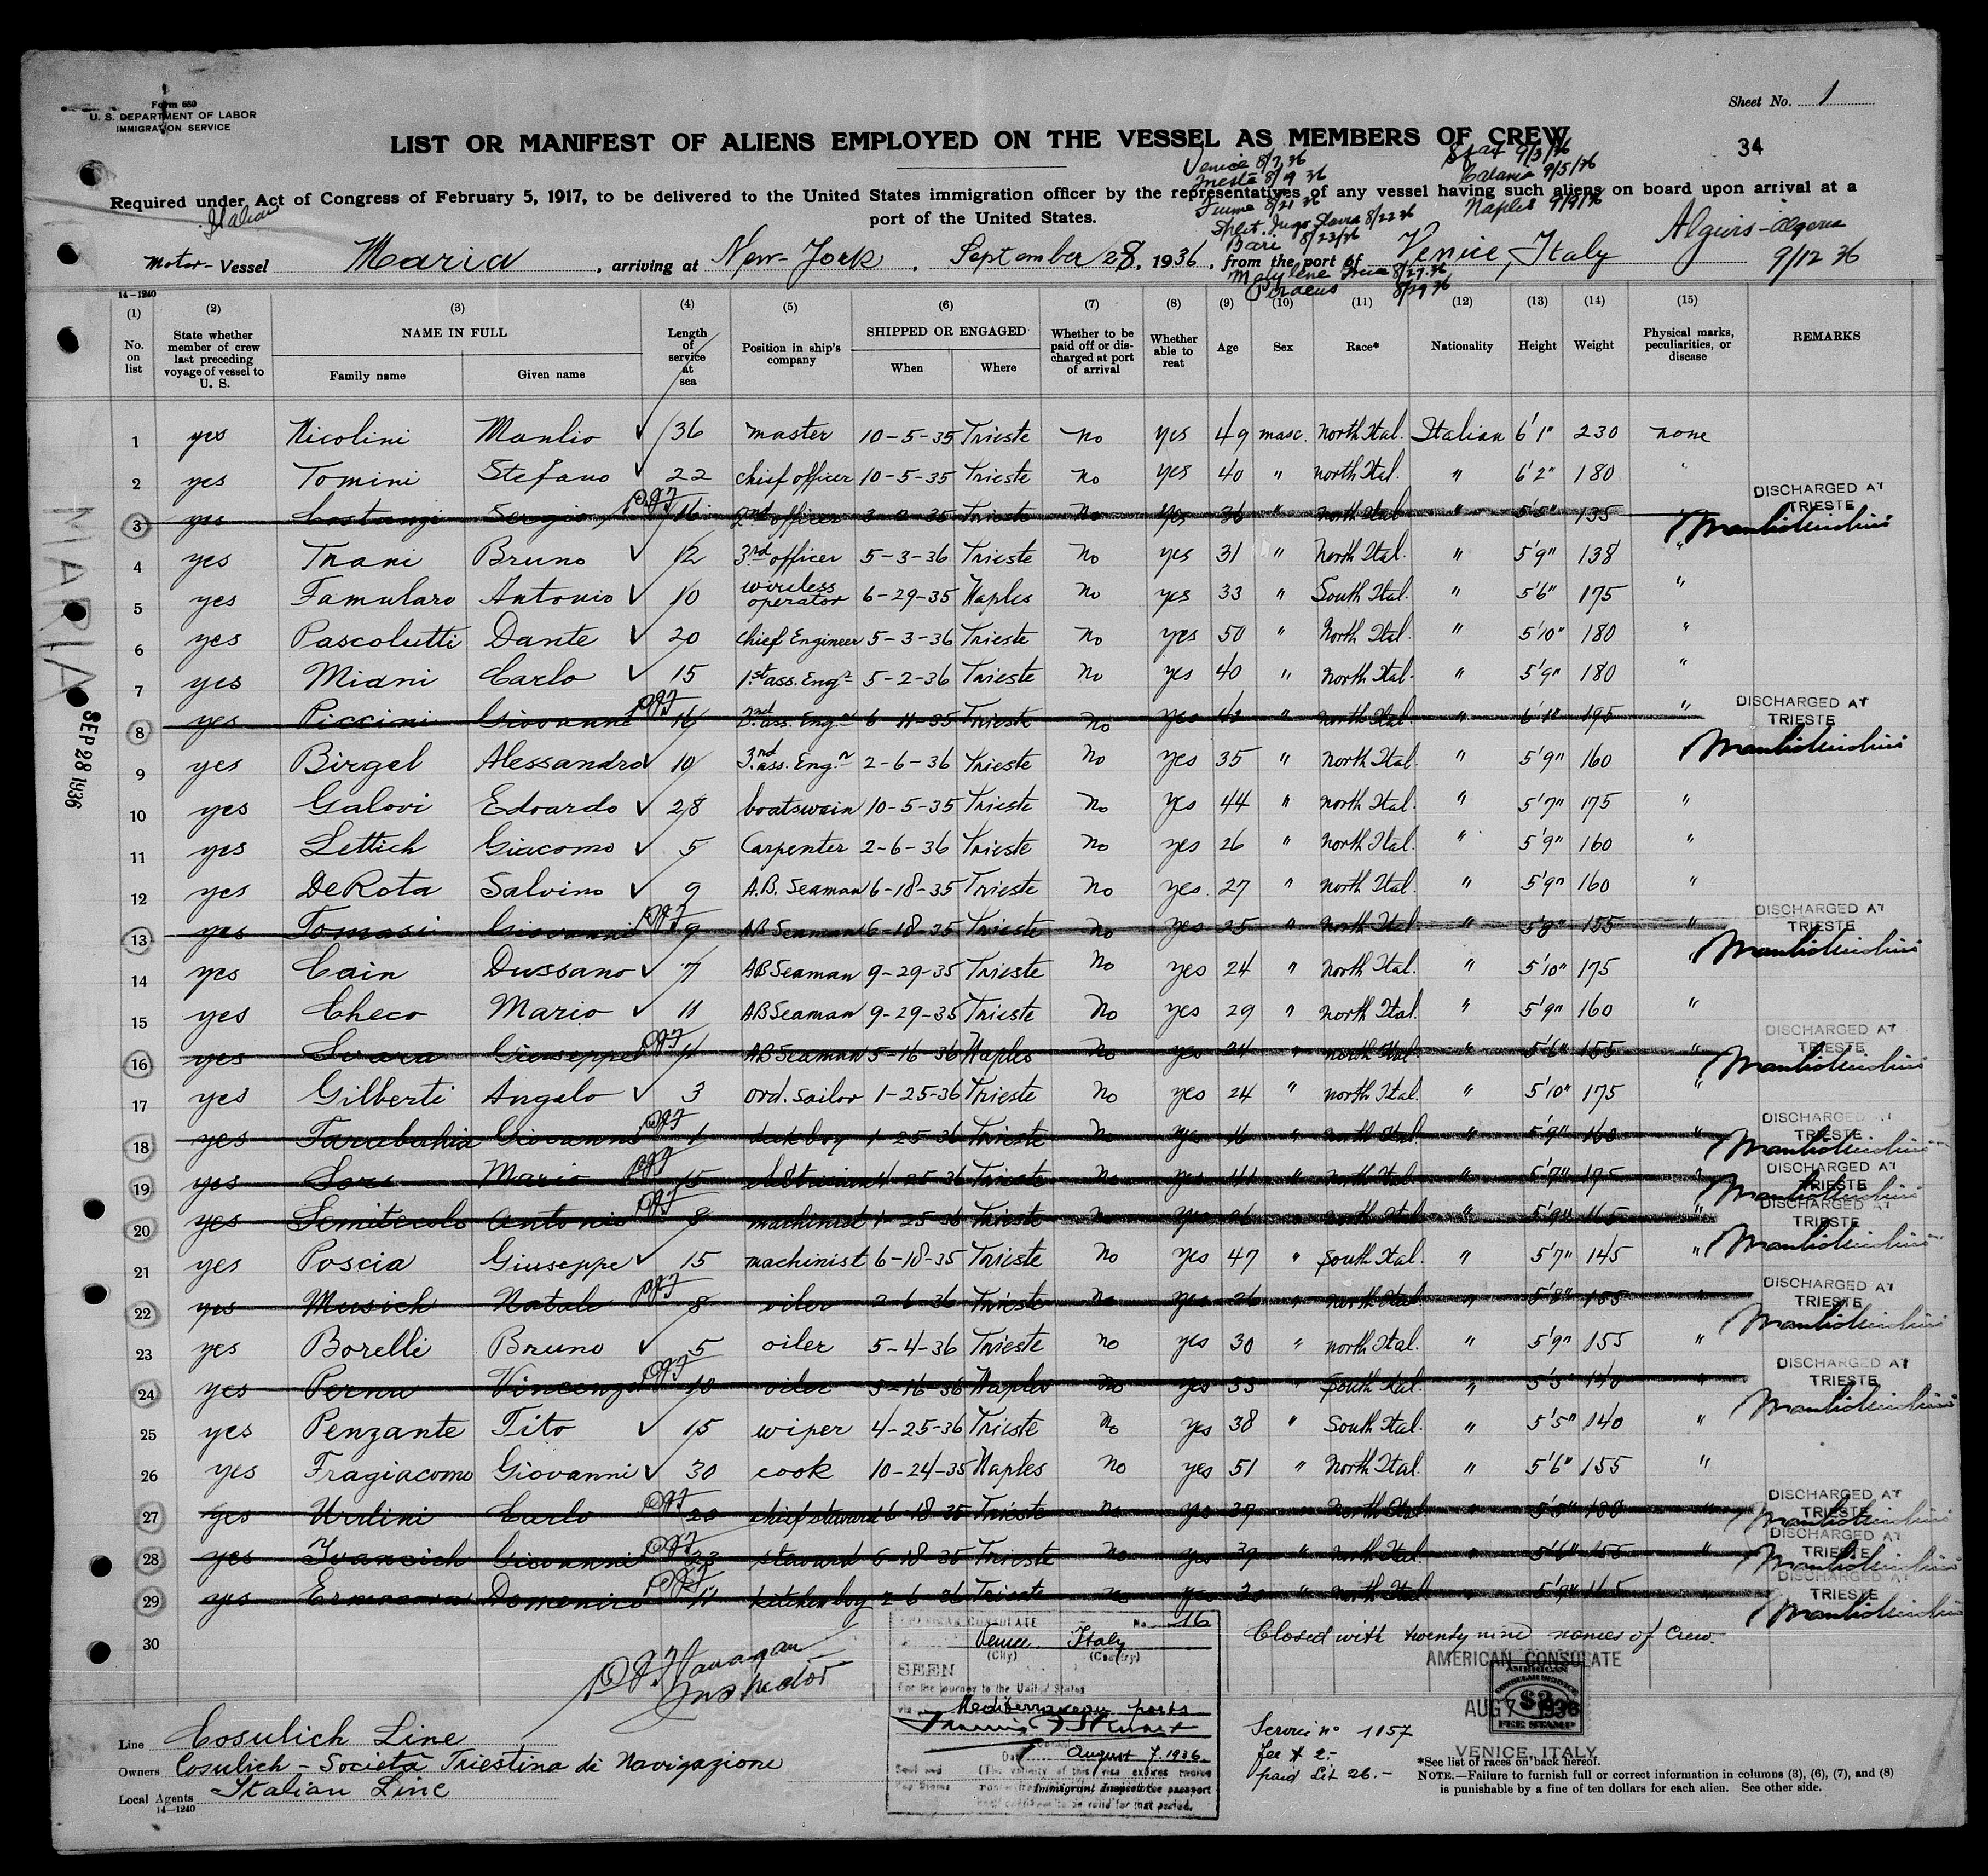 Form 680
U. S. DEPARTMENT OF LABOR
IMMIGRATION SERVICE
Sheet No. 1
LIST OR MANIFEST OF ALIENS EMPLOYED ON THE VESSEL AS MEMBERS OF CREW
34
Venice 8/7/36
Trieste 8/19 36
Fiume 8/21 36
Split. Jugo Slavia 8/22 36
Bari 8/23/36
Piraeus 8/29 36
9/3/36
Catania 9/5/36
Naples 9/9/36
Algiers - Algeria
9/12 36
Required under Act of Congress of February 5, 1917, to be delivered to the United States immigration officer by the representatives of any vessel having such aliens on board upon arrival at a
port of the United States.
Italian
Motor-Vessel Maria, arriving at New-York, September 28, 1936, from the port of Venice, Italy
14-1240
(1) (2) (3) (4) (5) (6) (7) (8) (9) (10) (11) (12) (13) (14) (15)
No. on list
State whether member of crew last preceding voyage of vessel to U. S.
NAME IN FULL
Family name
Given name
Length of service at sea
Position in ship's company
SHIPPED OR ENGAGED
When
Where
Whether to be paid off or discharged at port of arrival
Whether able to reat
Age
Sex
Race*
Nationality
Height
Weight
Physical marks, peculiarities, or disease
REMARKS
1 yes Nicolini Manlio 36 master 10-5-35 Trieste no yes 49 masc. North Ital. Italian 6'1" 230 none
2 yes Tomini Stefano 22 chief officer 10-5-35 Trieste no yes 40 " north Ital. " 6'2" 180 "
3 yes Sergio 16 2nd officer Trieste no yes 36 " north Ital " 5'5" 135 DISCHARGED AT TRIESTE
4 yes Trani Bruno 12 3rd officer 5-3-36 Trieste no yes 31 " North Ital. " 5'9" 138 "
5 yes Famularo Antonio 10 wireless operator 6-29-35 Naples no yes 33 " South Ital. " 5'6" 175 "
6 yes Pascolutti Dante 20 chief Engineer 5-3-36 Trieste no yes 50 " North Ital. " 5'10" 180 "
7 yes Miani Carlo 15 1st ass. Engr 5-2-36 Trieste no yes 40 " north Ital. " 5'9" 180 "
8 yes Piccini Giovanni 16 2nd ass. Engr Trieste no yes 42 " north Ital. " 6'1" 195 " DISCHARGED AT TRIESTE
9 yes Birgel Alessandro 10 3rd ass. Engr 2-6-36 Trieste no yes 35 " north Ital. " 5'9" 160
10 yes Galovi Edoardo 28 boatswain 10-5-35 Trieste no yes 44 " north Ital. " 5'7" 175 "
11 yes Lettich Giacomo 5 Carpenter 2-6-36 Trieste no yes 26 " north Ital. " 5'9" 160 "
12 yes DeRota Salvino 9 A.B. Seaman 6-18-35 Trieste no yes. 27 " north Ital. " 5'9" 160 "
13 yes Tomasi Giovanni 9 AB Seaman 6-18-35 Trieste no yes 25 " north Ital " 5'8" 155 " DISCHARGED AT TRIESTE
14 yes Cain Dussano 7 AB Seaman 9-29-35 Trieste no yes 24 " north Ital. " 5'10" 175 "
15 yes Checo Mario 11 AB Seaman 9-29-35 Trieste no yes 29 " north Ital. " 5'9" 160 "
16 yes Giuseppe AB Seaman 5-16-36 Naples no yes 24 " north Ital. " 5'6" 155 " DISCHARGED AT TRIESTE
17 yes Gilberti Angelo 3 ord. sailor 1-25-36 Trieste no yes 24 " north Ital. " 5'10" 175 "
18 yes Giovanni 1 deck boy 1-25-36 Trieste no yes 16 " north Ital. " 5'9" 160 " DISCHARGED AT TRIESTE
19 yes Mario 15 4-25-36 Trieste no yes 41 " north Ital " 5'7" 175 " DISCHARGED AT TRIESTE
20 yes Semitecolo Antonio 8 machinist 1-25-36 Trieste no yes 26 " north Ital. " 5'9" 165 " DISCHARGED AT TRIESTE
21 yes Poscia Giuseppe 15 machinist 6-18-35 Trieste no yes 47 " South Ital. " 5'7" 145 "
22 yes Musich Natale 8 oiler 2-6-36 Trieste no yes 26 " north Ital " 5'8" 155 " DISCHARGED AT TRIESTE
23 yes Borelli Bruno 5 oiler 5-4-36 Trieste no yes 30 " north Ital. " 5'9" 155 "
24 yes Perna Vincenzo 10 oiler 5-16-36 Naples no yes 33 " South Ital. " 5'5" 140 " DISCHARGED AT TRIESTE
25 yes Penzante Tito 15 wiper 4-25-36 Trieste no yes 38 " South Ital. " 5'5" 140 "
26 yes Fragiacomo Giovanni 30 cook 10-24-35 Naples no yes 51 " North Ital. " 5'6" 155 "
27 yes Urdini Carlo 20 chief steward 6-18-35 Trieste no yes 37 " North Ital " 5'5" 180 " DISCHARGED AT TRIESTE
28 yes Ivancich Giovanni 23 steward 6-18-35 Trieste no yes 39 " north Ital " 5'6" 155 " DISCHARGED AT TRIESTE
29 yes Domenico 11 kitchen boy 2-6-36 Trieste no yes " north Ital " 5'9" 165 " DISCHARGED AT TRIESTE
30
MARIA
SEP 28 1936
Inspector
Closed with twenty nine names of Crew.
CONSULATE No. 16
Venice Italy
(City) (Country)
SEEN
For the journey to the United States
via Mediterranean ports
Date August 7. 1936.
(The validity of this visa expires twelve
AMERICAN CONSULATE
AMERICAN
CONSULAR SERVICE
$2
FEE STAMP
AUG 7 1936
VENICE, ITALY
Service no 1057
fee $ 2.-
paid Lit 26.-
Line Cosulich Line
Owners Cosulich - Società Triestina di Navigazione
Local Agents Italian Line
14-1240
*See list of races on back hereof.
NOTE.—Failure to furnish full or correct information in columns (3), (6), (7), and (8)
is punishable by a fine of ten dollars for each alien. See other side.